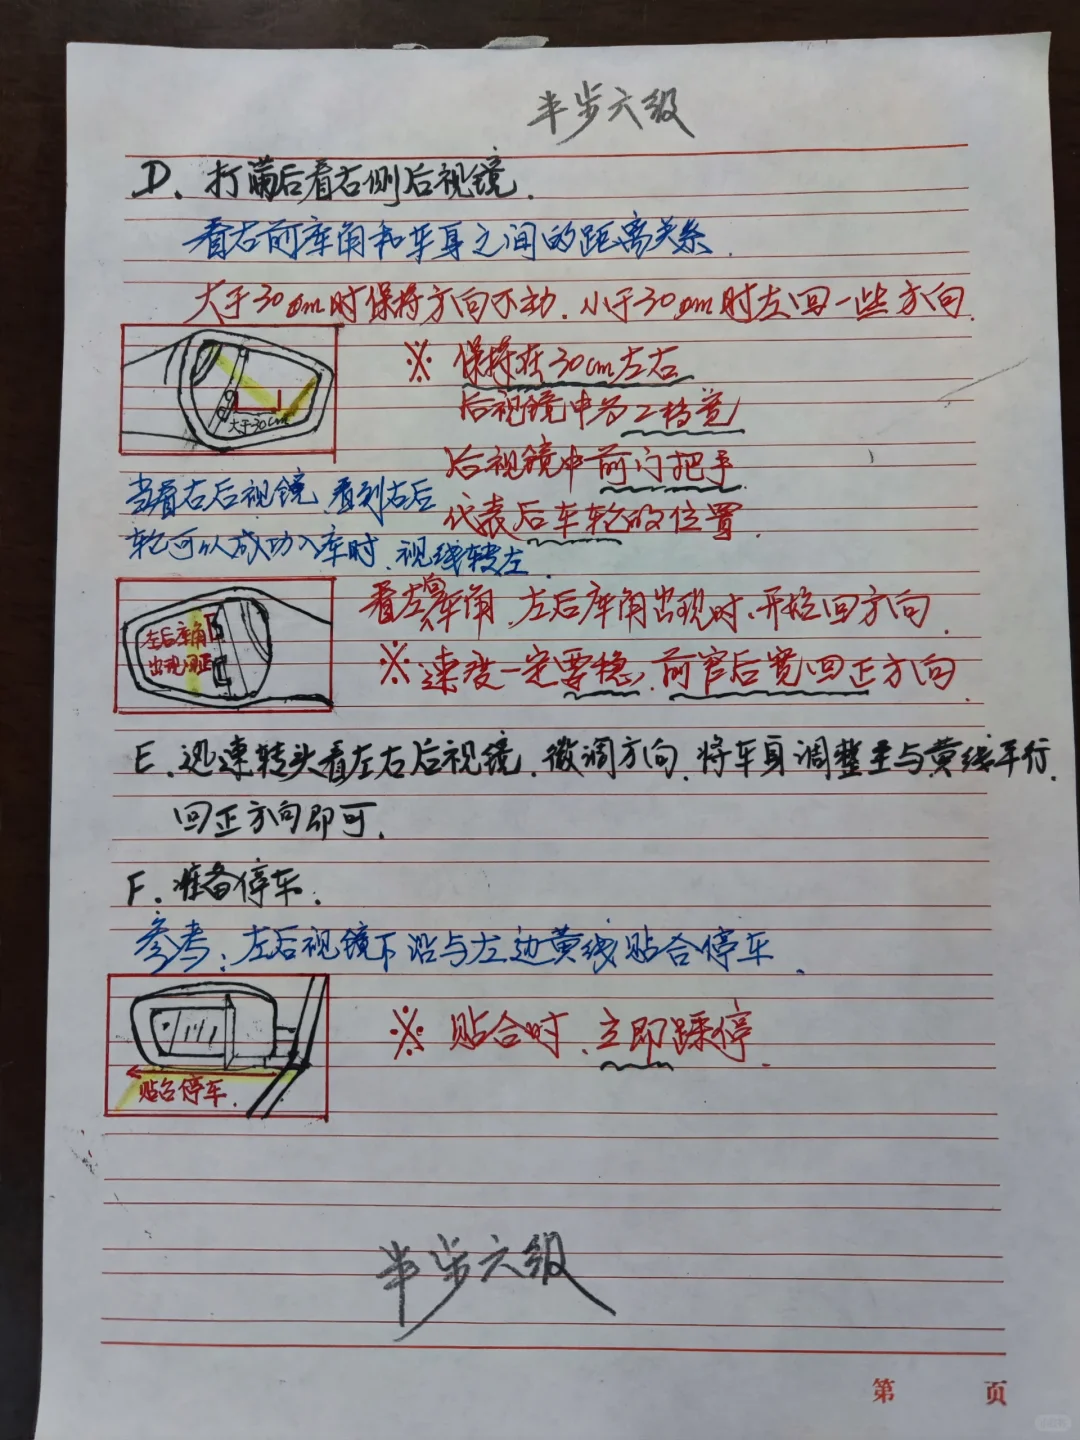 半步六级
D、打满后看右侧后视镜.
看右前库角和车身之间的距离关系.
大于30cm时保持方向不动.小于30cm时左回一些方向.
※ 保持在30cm左右
后视镜中为二档宽
大于30cm
后视镜中前门把手
当看右后视镜 看到右后
代表后车轮的位置.
轮可以成功入库时.视线转左.
看左后库角.左后库角出现时.开始回方向.
左后库角
出现回正
※速度一定要稳.前窄后宽回正方向.
E.迅速转头看左右后视镜.微调方向.将车身调整至与黄线平行.
回正方向即可.
F.准备停车.
参考:左后视镜下沿与左边黄线贴合停车.
※ 贴合时.立即踩停.
贴合停车.
半步六级
第 页